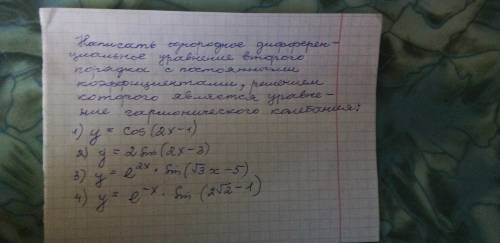 Написать однородное дифферен-
циальное уравнение второго
порядка с постоянными
коэффициентами, решением
которого является уравне-
ние гармонического колебания:
1) y = cos(2x-1)
2) y = 2 sin(2x-3)
3) y = e^2x · sin(√3x-5)
4) y = e^-x · sin(2√2-1)